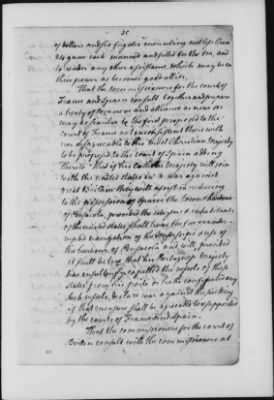 35
of dollars and six frigates mounting not less than
24 guns each manned and fitted for the sea, and
to render any other assistance which may be in
their power as becomes good allies.
That the commissioners for the court of
France and Spain consult together and prepare
a treaty of commerce and alliance as near as
may be similar to the first proposed to the
court of France not inconsistent there with
nor disagreeable to his most Christian Majesty
to be proposed to the court of Spain adding
thereto "That if his Catholic Majesty will join
with the united states in a war against
great Britain they will assist in reducing
to the possession of Spain the town & harbour
of Pensacola, provided the subjects & inhabitants
of the united states shall have the free uninter
rupted navigation of the Mississipi & use of
the harbour of Pensacola and will provided
it shall be true that his Portuguese Majesty
has insultingly expelled the vessels of these
states from his ports or hath confiscated any
such vessels, declare war against the said king
if that measure shall be agreeable to & supported
by the courts of France and Spain.
That the commissioners for the court of
Berlin consult with the commissioners at